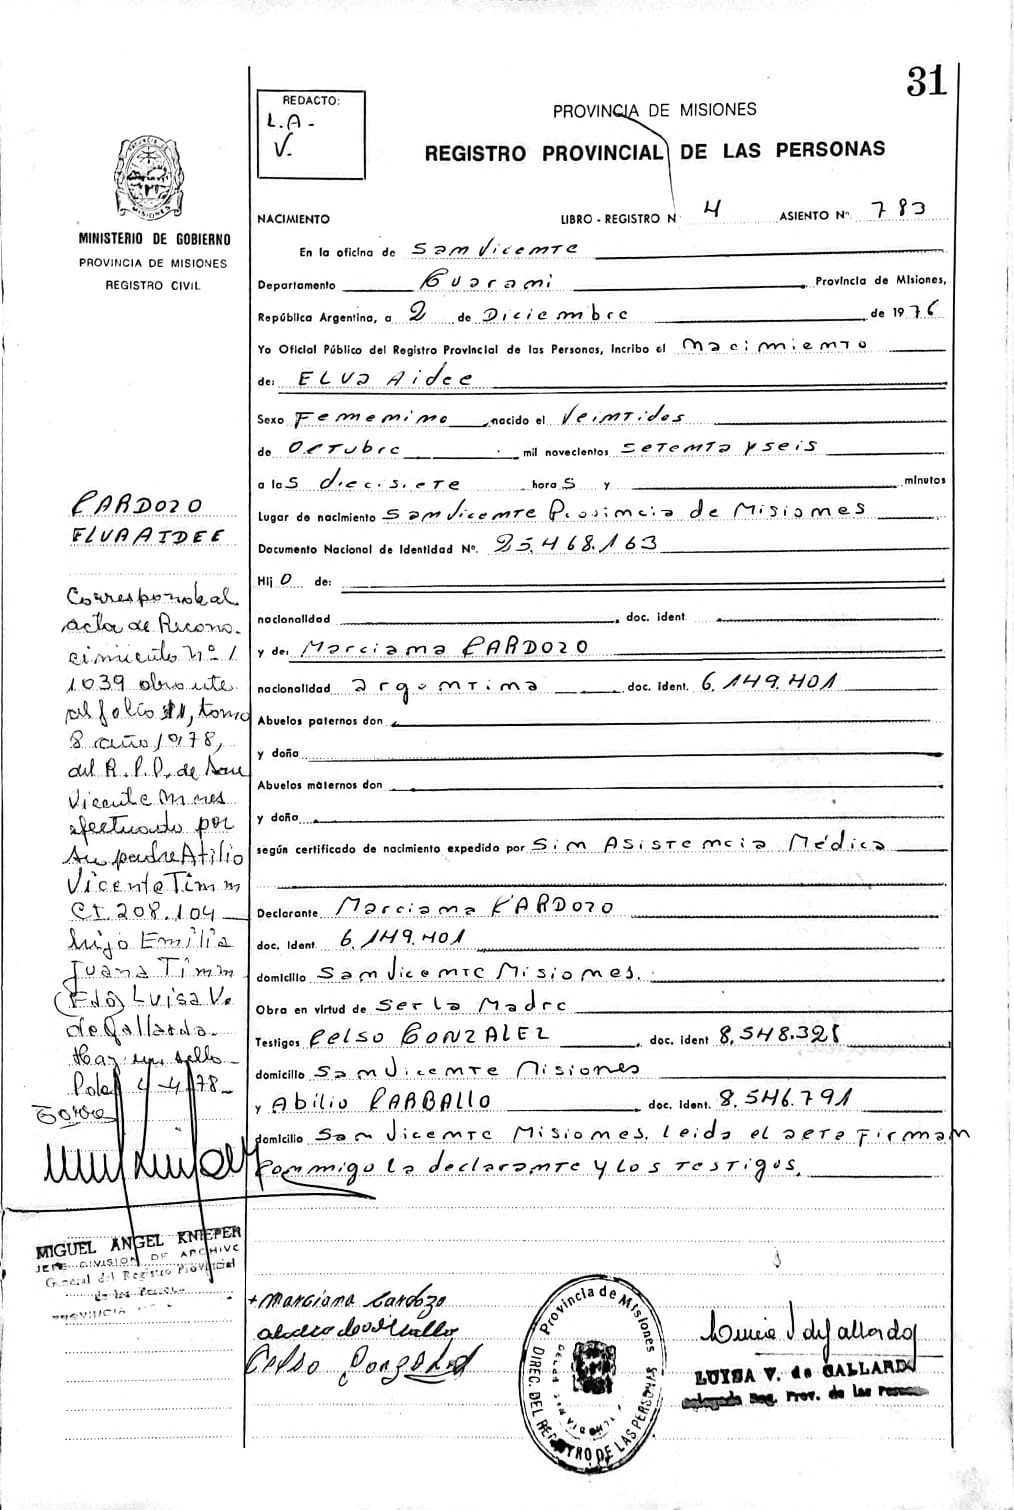 31
REDACTO:
L.A-
V.
PROVINCIA DE MISIONES
REGISTRO PROVINCIAL DE LAS PERSONAS
MISIONES
MINISTERIO DE GOBIERNO
PROVINCIA DE MISIONES
REGISTRO CIVIL
NACIMIENTO LIBRO - REGISTRO N 4 ASIENTO Nº. 783
En la oficina de San Vicente
Departamento Guarani Provincia de Misiones,
República Argentina, a 2 de Diciembre de 1976
Yo Oficial Público del Registro Provincial de las Personas, Incribo el nacimiento
de: ELVa Aidee
Sexo Femenino nacido el Veintidos
de Octubre mil novecientos setenta y seis
a las diecisiete horas y minutos
Lugar de nacimiento San Vicente Provincia de Misiones
Documento Nacional de Identidad Nº. 25.468.163
Hijo de:
nacionalidad doc. ident
y de: Marciana CARDOZO
nacionalidad argentina doc. ident. 6.149.401
Abuelos paternos don
y doña
Abuelos maternos don
y doña
según certificado de nacimiento expedido por Sin Asistencia Médica
Declarante Marciana CARDOZO
doc. ident. 6.149.401
domicilio San Vicente Misiones.
Obra en virtud de Ser la Madre
Testigos Celso GONZALEZ doc. ident 8.548.328
domicilio San Vicente Misiones
y Abilio CARBALLO doc. ident. 8.546.791
domicilio San Vicente Misiones. Leida el acta firman
conmigo la declarante y los testigos.
CARDOZO
ELVA AIDEE
Corresponde al
acta de Recono-
cimiento Nº 1
1039 obrante
al folio 11, tomo
8 año 1978,
del R.P.P. de San
Vicente Mnes
efectuado por
su padre Atilio
Vicente Timm
CI. 208.104
hijo Emilia
Juana Timm
(Fdo) Luisa V.
de Gallardo.
Hay un sello
Pdas 4-4-78
MIGUEL ANGEL KNIEPER
JEFE DIVISION DE ARCHIVO
General del Registro Provincial
de las Personas
PROVINCIA
+ Marciana Cardozo
Celso Gonzalez
Provincia de Misiones
DIREC. DEL REGISTRO DE LAS PERSONAS
LUISA V. de GALLARDO
Delegada Reg. Prov. de las Personas